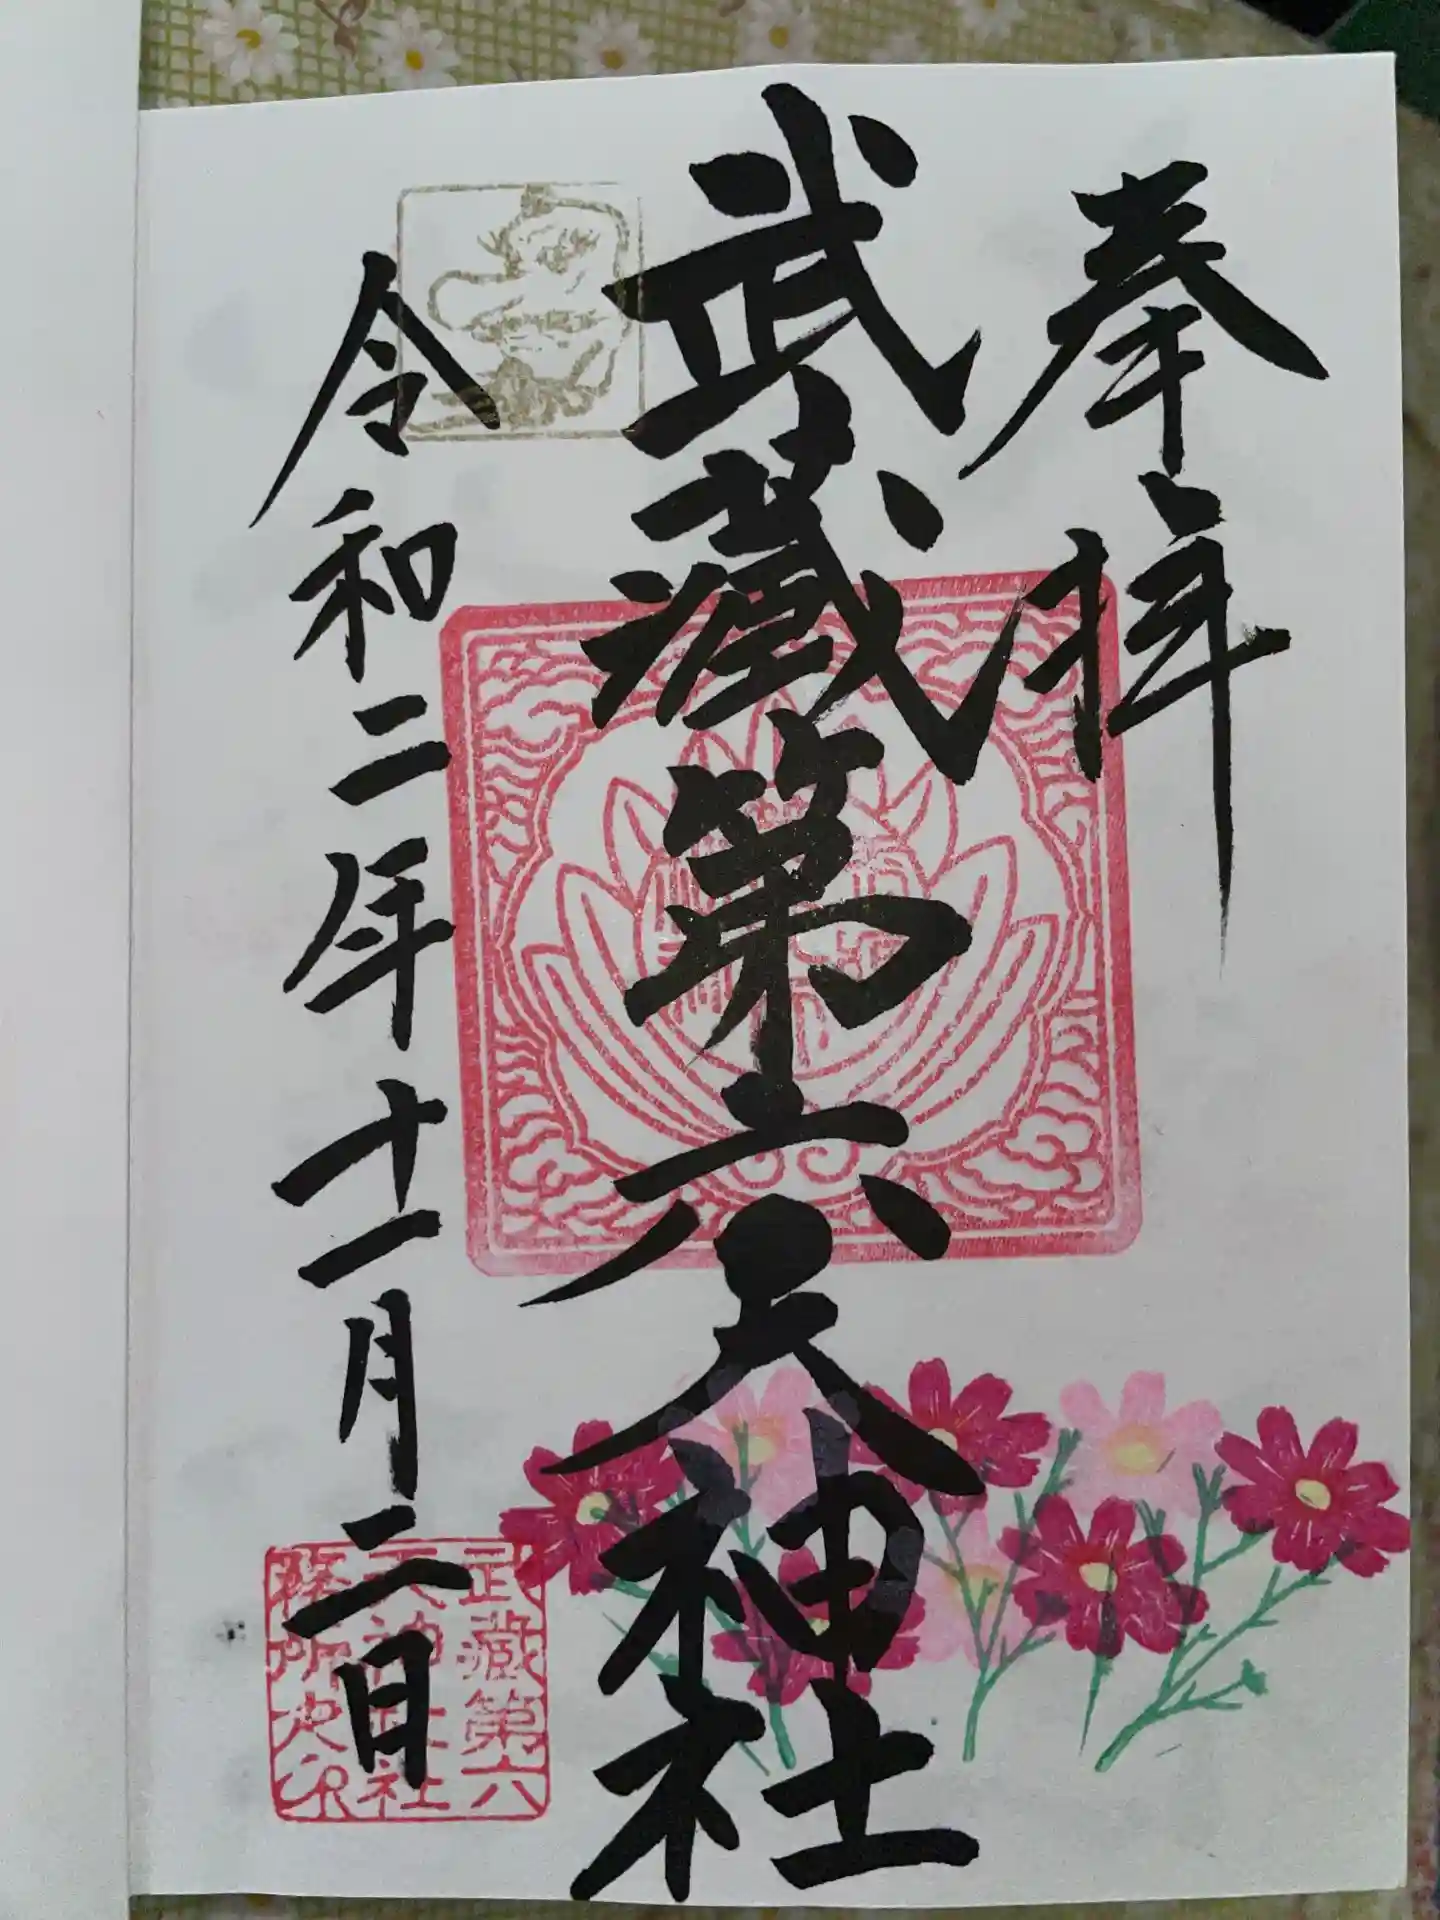 奉拝
武蔵第六天神社
令和二年十一月二日
武蔵第六
天神社社
務所之印